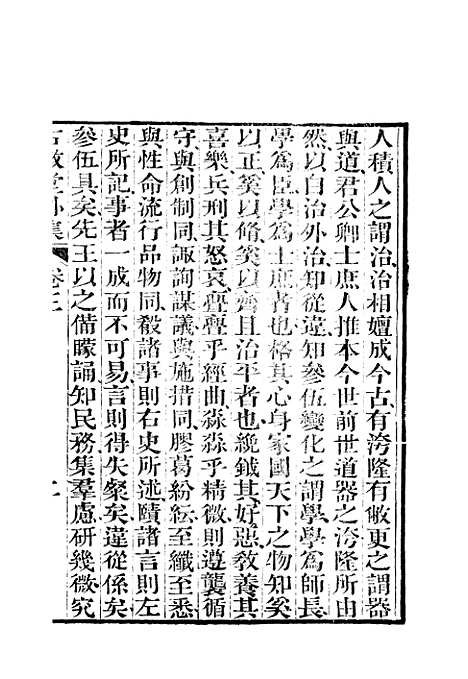 人積人之謂治治相嬗成今古有洿隆有敝更之謂器
與道君公卿士庶人推本今世前世道器之洿隆所由
然以自治外治知從違知參伍變化之謂學學爲師長
學爲臣學爲士庶者也格其心身家國天下之物知奚
以正奚以脩奚以齊且治平者也綩鉞其好惡敎養其
喜樂兵刑其怒哀亹亹乎經曲淼淼乎精微則遵襲循
守與創制同諏詢謀議與施措同膠葛紛紜至纖至悉
與性命流行品物同殽諸事則右史所述賾諸言則左
史所記事者一成而不可易言則得失粲矣違從係矣
參伍具矣先王以之備矇誦知民務集羣慮研幾微究
古微堂外集 卷三